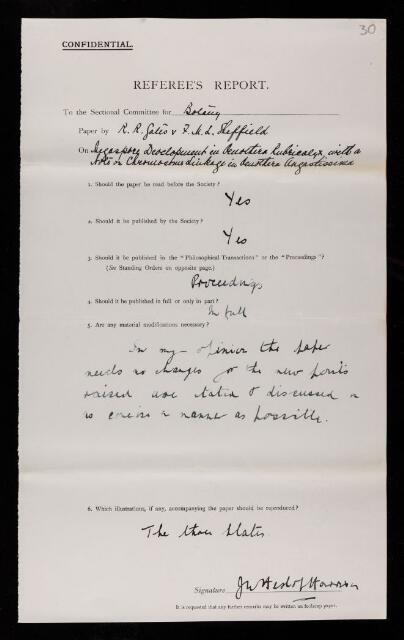 30
CONFIDENTIAL.
REFEREE'S REPORT.
To the Sectional Committee for Botany
Paper by R. R. Gates & F. M. L. Sheffield
On Megaspore Development in Oenothera Rubricalyx, with a
Note on Chromosome Linkage in Oenothera Angustissima
1. Should the paper be read before the Society?
Yes
2. Should it be published by the Society?
Yes
3. Should it be published in the "Philosophical Transactions" or the "Proceedings"?
(See Standing Orders on opposite page.)
Proceedings
4. Should it be published in full or only in part?
In full
5. Are any material modifications necessary?
In my opinion the paper
needs no changes for the new points
raised are stated & discussed in
as concise a manner as possible.
6. Which illustrations, if any, accompanying the paper should be reproduced?
The three plates
Signature J W Heslop Harrison
It is requested that any further remarks may be written on foolscap paper.